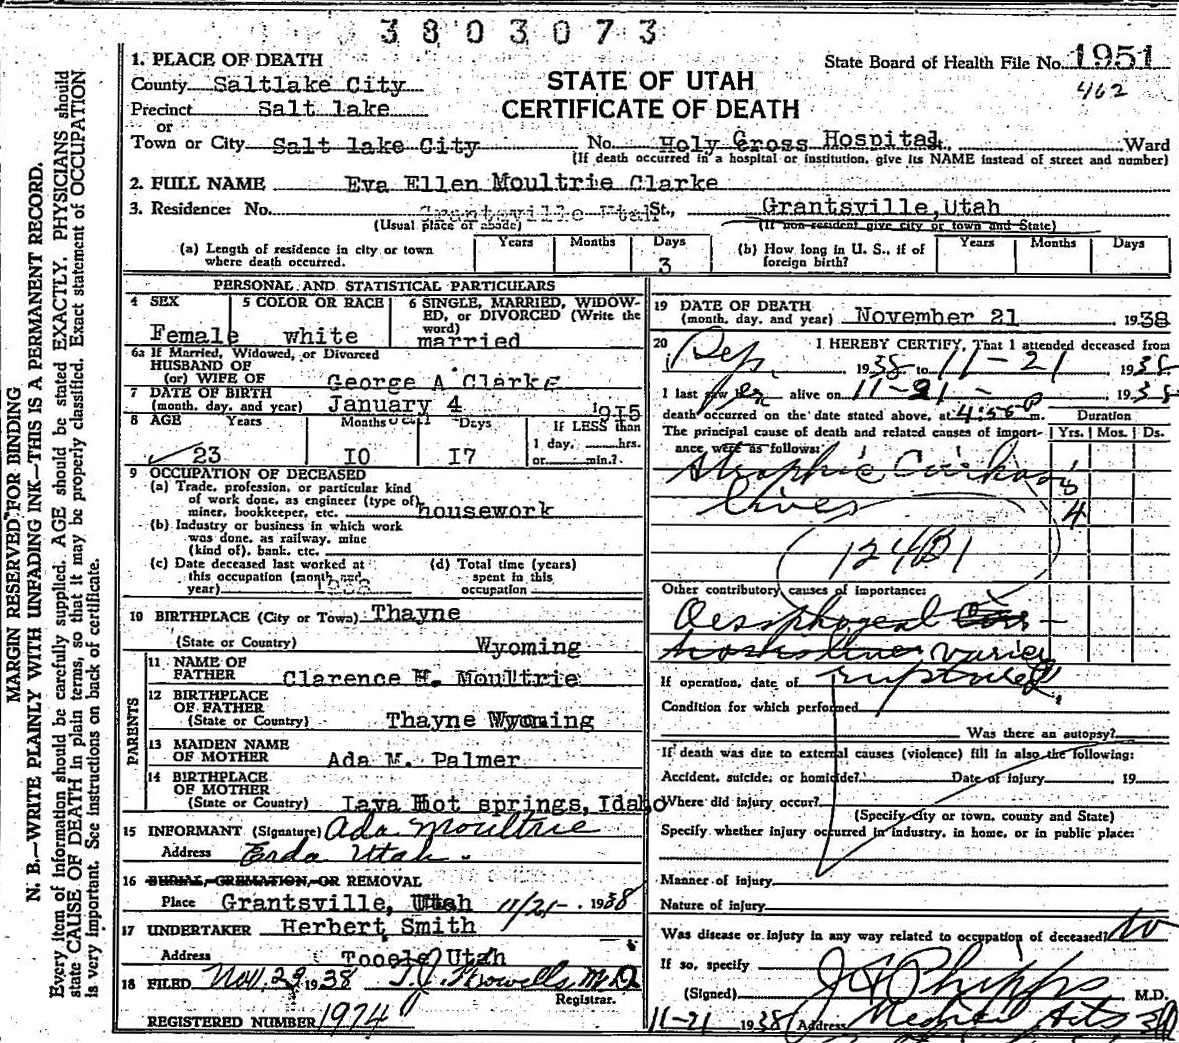 3803073
1. PLACE OF DEATH
County Saltlake City
Precinct Salt lake
or
Town or City Salt lake City No. Holy Cross Hospital St., Ward
(If death occurred in a hospital or institution, give its NAME instead of street and number)
STATE OF UTAH
CERTIFICATE OF DEATH
State Board of Health File No. 1951
462
2. FULL NAME Eva Ellen Moultrie Clarke
3. Residence: No. Grantsville Utah St., Grantsville, Utah
(Usual place of abode) (If non-resident give city or town and State)
(a) Length of residence in city or town where death occurred. Years Months Days 3
(b) How long in U. S., if of foreign birth? Years Months Days
PERSONAL AND STATISTICAL PARTICULARS
4 SEX Female
5 COLOR OR RACE white
6 SINGLE, MARRIED, WIDOWED, OR DIVORCED (Write the word) married
6a If Married, Widowed, or Divorced
HUSBAND OF
(or) WIFE OF George A Clarke
7 DATE OF BIRTH
(month, day, and year) January 4 1915
8 AGE Years 23 Months 10 Days 17
If LESS than
1 day, hrs.
or min.?
9 OCCUPATION OF DECEASED
(a) Trade, profession, or particular kind
of work done, as engineer (type of)
miner, bookkeeper, etc. housework
(b) Industry or business in which work
was done, as railway, mine
(kind of), bank, etc.
(c) Date deceased last worked at
this occupation (month and
year) 1938
(d) Total time (years)
spent in this
occupation
10 BIRTHPLACE (City or Town) Thayne
(State or Country) Wyoming
PARENTS
11 NAME OF
FATHER Clarence H. Moultrie
12 BIRTHPLACE
OF FATHER
(State or Country) Thayne Wyoming
13 MAIDEN NAME
OF MOTHER Ada M. Palmer
14 BIRTHPLACE
OF MOTHER
(State or Country) Lava Hot springs, Idaho
15 INFORMANT (Signature) Ada Moultrie
Address Erda Utah.
16 BURIAL, CREMATION, OR REMOVAL
Place Grantsville, Utah 11/21- 1938
17 UNDERTAKER Herbert Smith
Address Tooele Utah
18 FILED Nov. 29 1938 M.D.
Registrar.
REGISTERED NUMBER 1974
19 DATE OF DEATH
(month, day, and year) November 21, 1938
20 I HEREBY CERTIFY, That I attended deceased from
Sep. 1938 to 11-21 1938
I last saw her alive on 11-21- 1938
death occurred on the date stated above, at 4:55 P m. Duration
The principal cause of death and related causes of importance were as follows: Yrs. Mos. Ds.
Atrophic Cirrhosis
liver 4
124B1
Other contributory causes of importance:
Oesophogeal
varices
ruptured
If operation, date of
Condition for which performed
Was there an autopsy?
If death was due to external causes (violence) fill in also the following:
Accident, suicide, or homicide? Date of injury 19
Where did injury occur?
(Specify city or town, county and State)
Specify whether injury occurred in industry, in home, or in public place:
Manner of injury
Nature of injury
Was disease or injury in any way related to occupation of deceased? No
If so, specify
(Signed) Phipps M.D.
11-21 1938 Address Medical Arts
MARGIN RESERVED FOR BINDING
N. B.—WRITE PLAINLY WITH UNFADING INK—THIS IS A PERMANENT RECORD.
Every item of information should be carefully supplied. AGE should be stated EXACTLY. PHYSICIANS should
state CAUSE OF DEATH in plain terms, so that it may be properly classified. Exact statement of OCCUPATION
is very important. See instructions on back of certificate.